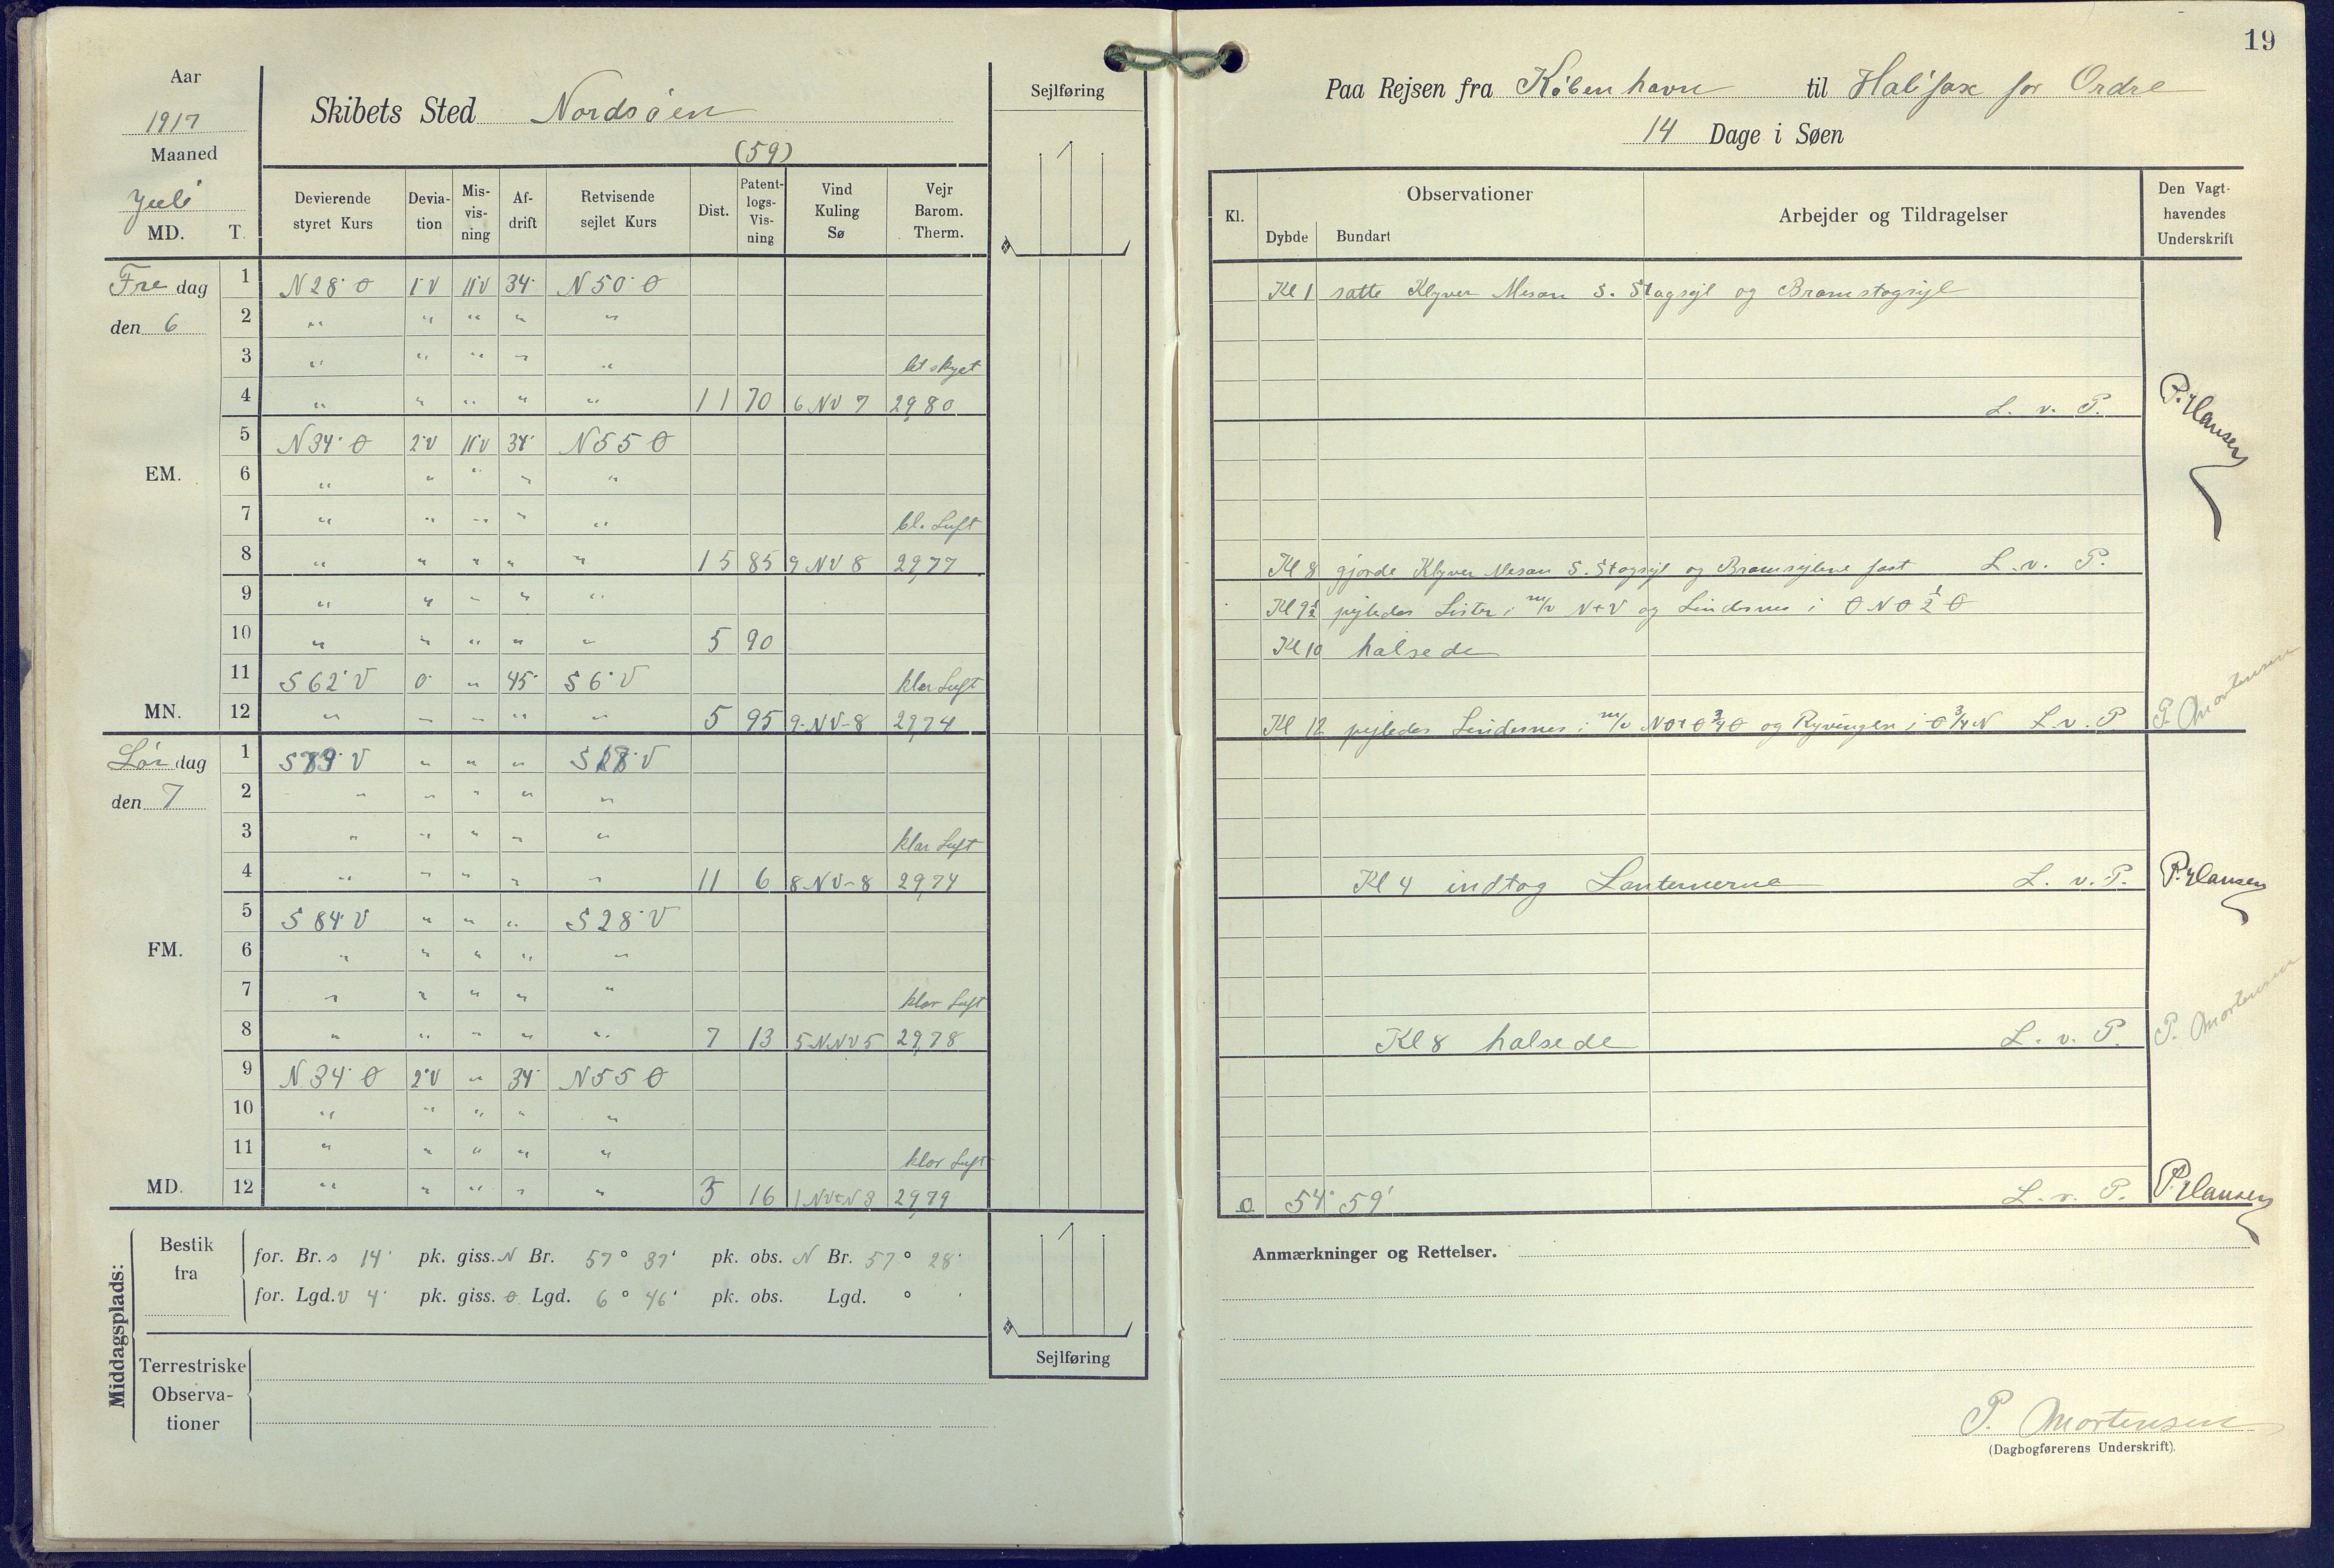 Aar
1917
Maaned
Juli
MD. T.
Skibets Sted Nordsöen
(59)
Devierende styret Kurs | Devia-tion | Mis-vis-ning | Af-drift | Retvisende sejlet Kurs | Dist. | Patent-logs-Vis-ning | Vind Kuling Sø | Vejr Barom. Therm.
Sejlføring
Fredag 1 N28°O 1°V 11°V 34° N50°O
den 6 2 " " " " "
3 " " " " " let skyet
4 " " " " " 11 70 6 NV 7 29,80
5 N34°O 2°V 11°V 34° N55 O
EM. 6 " " " " "
7 " " " " " bl. Luft
8 " " " " " 15 85 9 NV 8 29,77
9 " " " " "
10 " " " " " 5 90
11 S62°V 0° " 45° S6°V klar Luft
MN. 12 " " " " " 5 95 9-NV-8 29,74
Lördag 1 S79°V " " " S28°V
den 7 2 " " " " "
3 " " " " " klar Luft
4 " " " " " 11 6 8 NV-8 29,74
5 S84°V " " " S28°V
FM. 6 " " " " "
7 " " " " " klar Luft
8 " " " " " 7 13 5-NNV5 29,78
9 N34°O 2°V " 34° N55 O
10 " " " " "
11 " " " " " klar Luft
MD. 12 " " " " " 3 16 1 NVtN 3 29,79
Middagsplads:
Bestik fra
for. Br. S 14' pk. giss. N Br. 57° 37' pk. obs. N Br. 57° 28'
for. Lgd. V 4' pk. giss. O Lgd. 6° 46' pk. obs. Lgd. ° '
Terrestriske
Observa-
tioner
Sejlføring
19
Paa Rejsen fra Köbenhavn til Halifax for Ordre
14 Dage i Søen
Kl. | Observationer | Dybde | Bundart | Arbejder og Tildragelser | Den Vagt-havendes Underskrift
Kl 1 satte Klyver Mesan S. Stagsejl og Bramstagsejl
L. v. P. P. Hansen
Kl 8 gjorde Klyver Mesan S. Stagsejl og Bramsejlene fast L. v. P.
Kl 9½ pejledes Lister i m/v NtV og Lindesnes i ONO½O
Kl 10 halsede
Kl 12 pejledes Lindesnes i m/v NOtO¾O og Ryvingen i O¾N L. v. P. P. Mortensen
Kl 4 indtog Lanternerne L. v. P. P. Hansen
Kl 8 halsede L. v. P. P. Mortensen
54° 59' L. v. P. P. Hansen
Anmærkninger og Rettelser.
P. Mortensen
(Dagbogførerens Underskrift).